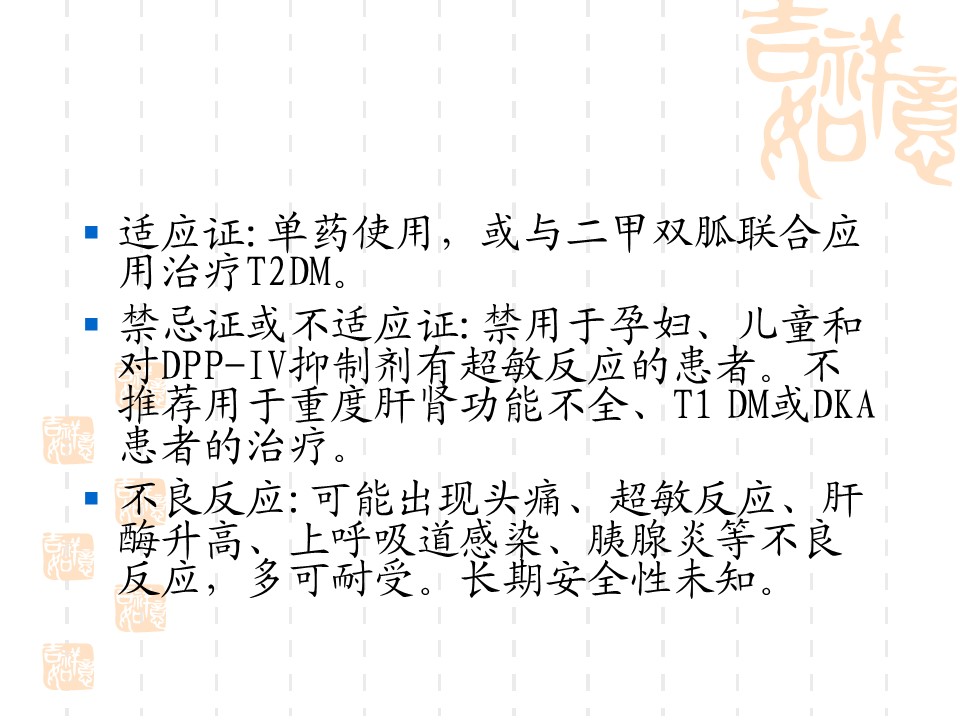 吉祥如意
适应证: 单药使用，或与二甲双胍联合应
用治疗T2DM。
禁忌证或不适应证: 禁用于孕妇、儿童和
对DPP-IV抑制剂有超敏反应的患者。不
推荐用于重度肝肾功能不全、T1 DM或DKA
患者的治疗。
不良反应: 可能出现头痛、超敏反应、肝
酶升高、上呼吸道感染、胰腺炎等不良
反应，多可耐受。长期安全性未知。
吉祥如意
吉祥如意
吉祥如意
吉祥如意
吉祥如意
吉祥如意